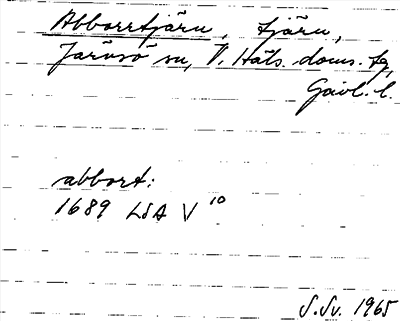 Abborrtjärn, tjärn,
Järvsö sn, V. Häls. doms. tg,
Gävl. l.
abbort:
1689 LSA V 10
S.Sv. 1965